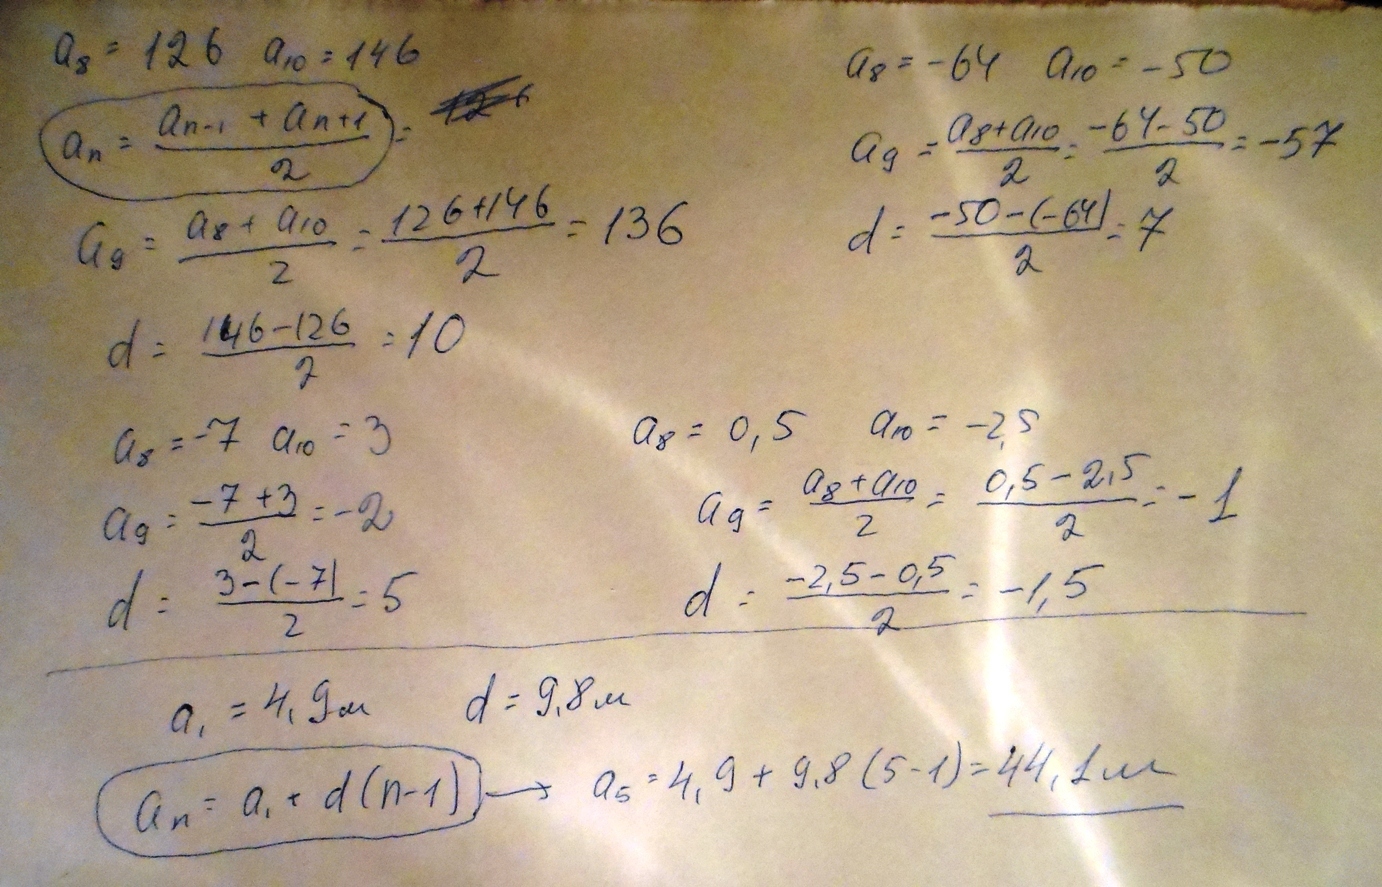 a₈ = 126 a₁₀ = 146
aₙ = (aₙ₋₁ + aₙ₊₁)/2 =
a₉ = (a₈ + a₁₀)/2 = (126+146)/2 = 136
d = (146-126)/2 = 10
a₈ = -64 a₁₀ = -50
a₉ = (a₈+a₁₀)/2 = (-64-50)/2 = -57
d = (-50-(-64))/2 = 7
a₈ = -7 a₁₀ = 3
a₉ = (-7+3)/2 = -2
d = (3-(-7))/2 = 5
a₈ = 0,5 a₁₀ = -2,5
a₉ = (a₈+a₁₀)/2 = (0,5-2,5)/2 = -1
d = (-2,5-0,5)/2 = -1,5
a₁ = 4,9м d = 9,8м
aₙ = a₁ + d(n-1) → a₅ = 4,9 + 9,8(5-1) = 44,1м